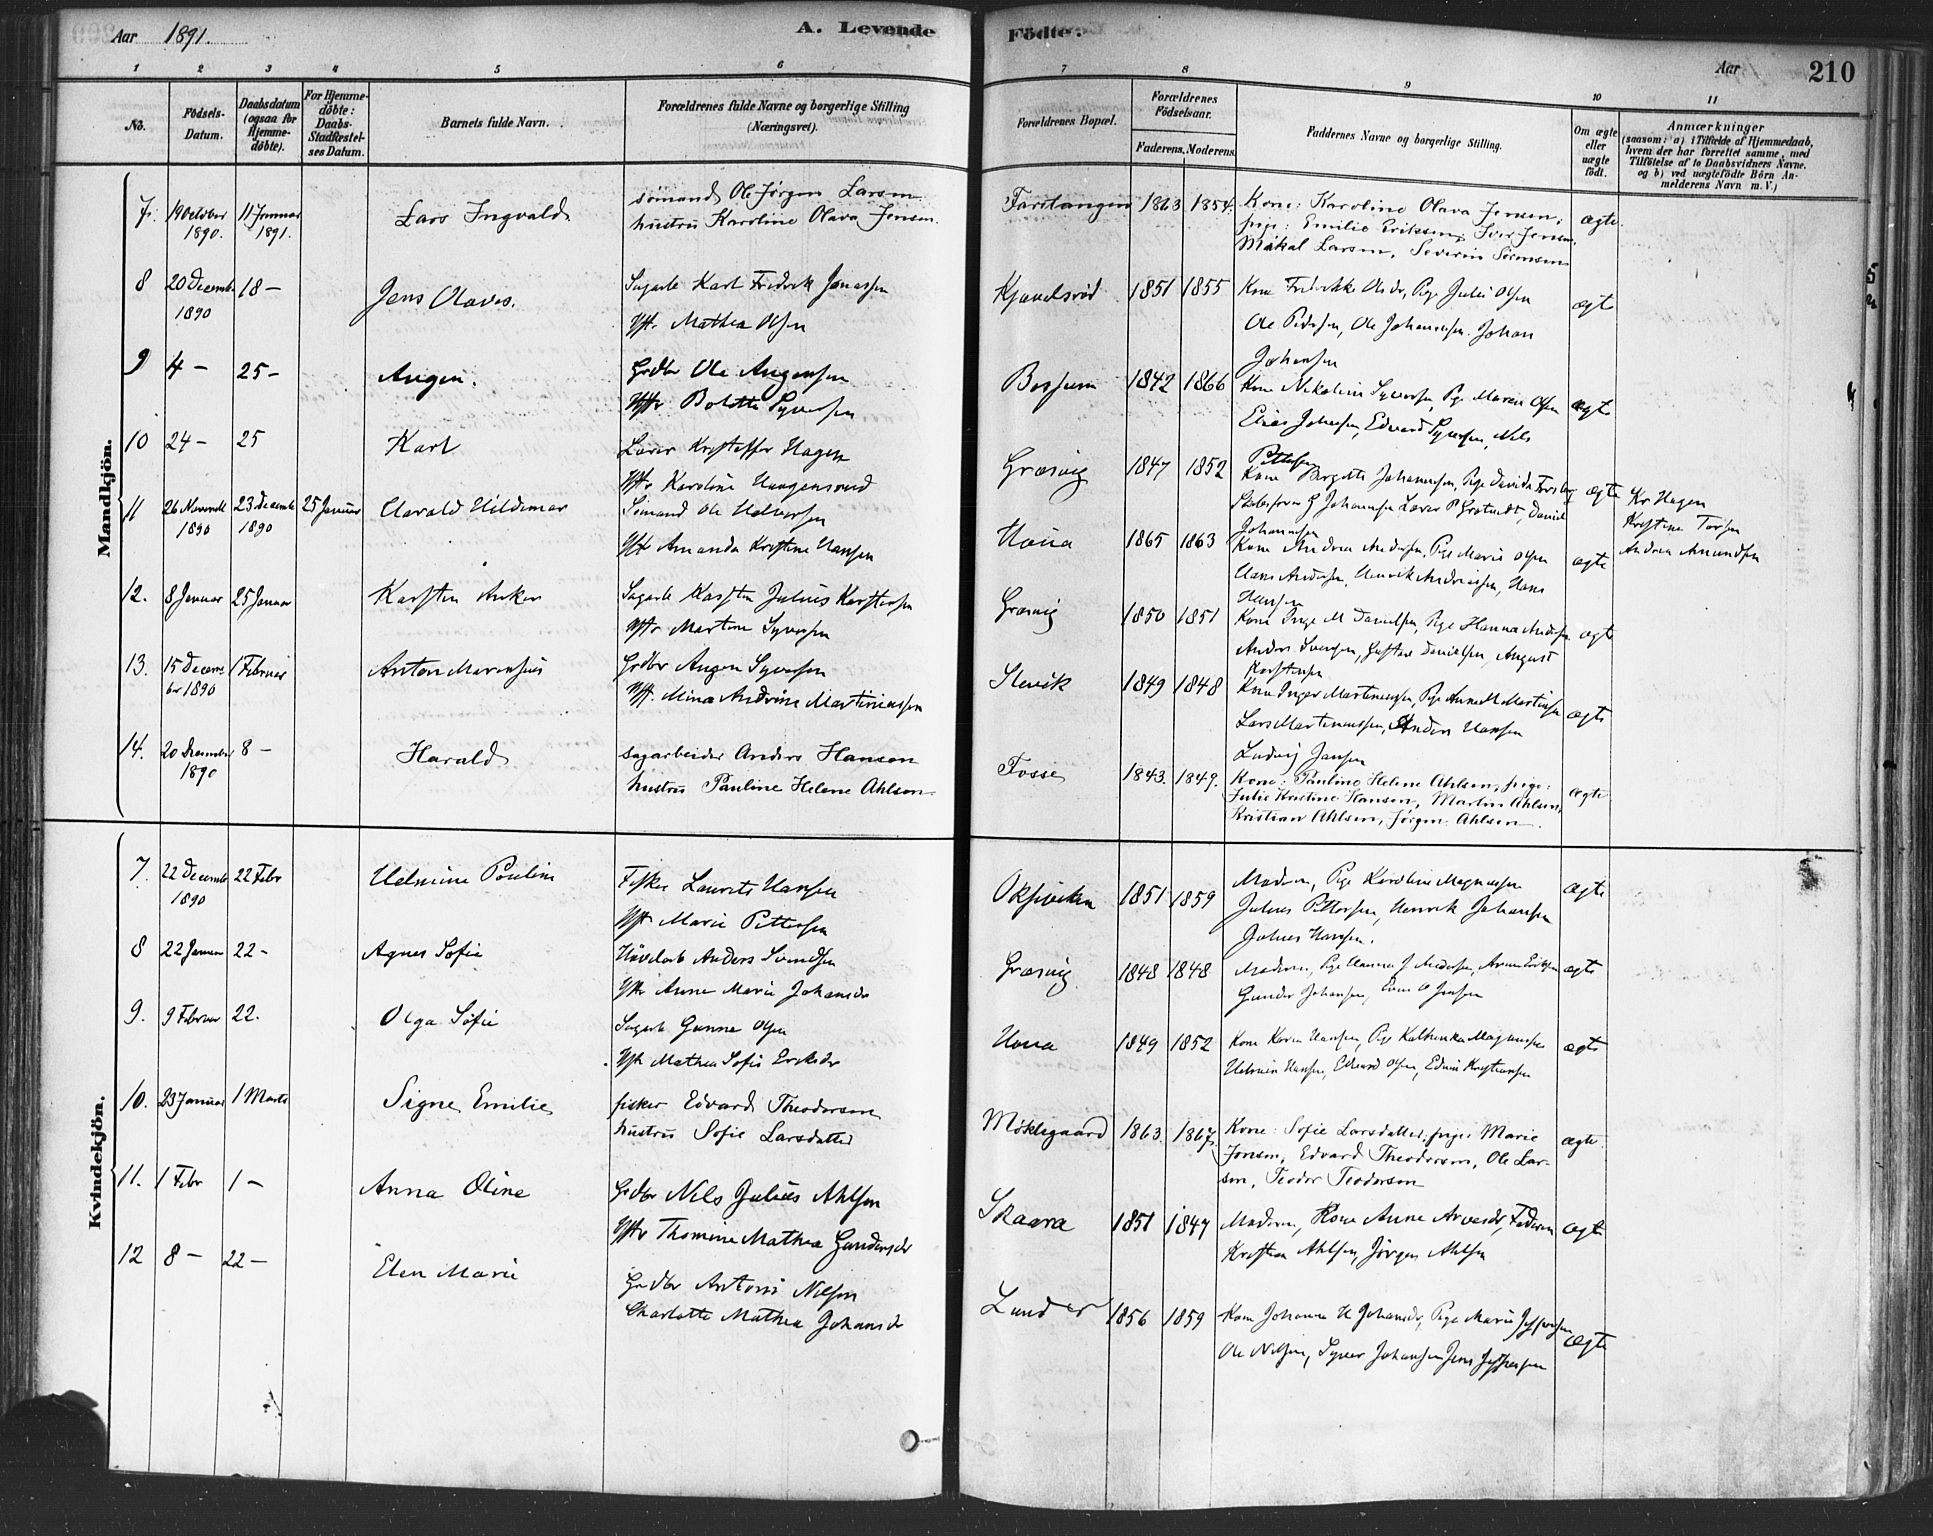 Aar 1891.
A. Levende
Födte.
Aar
210
1 2 3 4 5 6 7 8 9 10 11
No.
Födsels-Datum.
Daabsdatum (ogsaa for Hjemme-döbte).
For Hjemme-döbte: Daabs-Stadfæstel-ses Datum.
Barnets fulde Navn.
Forældrenes fulde Navne og borgerlige Stilling (Næringsvei).
Forældrenes Bopæl.
Forældrenes Födselsaar.
Faderens. Moderens.
Faddernes Navne og borgerlige Stilling.
Om ægte eller uægte födt.
Anmærkninger
(saasom: a) i Tilfælde af Hjemmedaab, hvem der har forrettet samme, med Tilföielse af to Daabsvidners Navne. og b) ved uægtefödte Börn An-melderens Navn m. V.)
Mandkjön.
7. 19 October 1890. 11 Januar 1891. Lars Ingvald
sömand Ole Jörgen Larsen
hustru Karoline Olava Jensen.
1863 1854.
Kone: Karoline Olava Jensen;
pige: Emilie Eriksen; Iver Jensen,
Mikal Larsen, Severin Sörensen
ægte
8 20 Decemb 1890 18 — Jens Olaves.
Sagarb Karl Fredrik Jonassen
Hst. Mathea Olsen
1851 1855
Ole Pedersen, Ole Johannesen. Johan
Johansen
ægt
9 4 — 25 — Augen.
Grdbr Ole Augensen
Hstr Bolette Syversen
1842 1866
Kone Nikoline Syversen, Pge Maren Olsen
Elias Johansen, Edvard Syversen, Nils
Pettersen
ægte
10 24 — 25 Karl
Lærer Kristoffer Hagen
Hstr Karoline Haagensund
Græsvig 1847 1852
ægte
11 26 Novemb 1890 23 Decemb 1890 25 Januar Harald Hildemar
Sömand Ole Halvorsen
Hst Amanda Kristine Hansen
Hona 1865 1863
Kone Andrea Andersen, Pge Marie Olsen
Hans Andersen, Henrik Andreassen, Hans
Hansen
ægte
Kr Hagen
Andrea Amundsen
12. 8 Januar 25 Januar Karsten Anker
Sagarb Karsten Julius Karstensen
Hstr Martine Syversen
Græsvig 1850 1851
Kone Inge M Danielsen, Pge Hanna Andersen
Anders Svensen, Gustav Danielsen, August
Karstensen
ægte
13. 15 Decem-ber 1890 1 Februar Anton Marensius
Grdbr Augen Syversen
Hst. Mina Andrine Martiniussen
Slevik 1849 1848
Lars Martinussen, Anders Hansen
Ludvig Jansen
ægte
14. 20 December 1890 8 — Harald
sagarbeider Anders Hanson
hustru Pauline Helene Ahlsen.
Fosse 1843. 1849.
Kone: Pauline Helene Ahlsen, pige:
Julie Kristine Hansen, Martin Ahlsen,
Kristian Ahlsen, Jörgen Ahlsen.
ægte
Kvindekjön.
7. 22 Decemb 1890 22 Febr Helmine Pauline
Fisker Laurits Hansen
Hst Marie Pettersen
Oksviken 1851 1859
Moderen, Pge Karoline Magnussen
Julius Pettersen, Henrik Johansen
Julius Hansen.
ægte
8 22 Januar 22 — Agnes Sofie
Hövelarb Anders Svendsen
Hstr Anne Marie Johansdr
Græsvig 1848 1848
Gunder Johansen,
ægte
9. 9 Februar 22. Olga Sofie
Sagarb Gunne Olsen
Hst Mathea Sofie Eriksdr
Hona 1849 1852
Kone Karen Hansen, Pge Kathinka Magnussen
Helmin Hansen, Edvard Olsen, Edvin Kristiansen
ægte
10. 23 Januar 1 Marts Signe Emilie
fisker Edvard Theodorsen
hustru Sofie Larsdatter
Möklegaard 1863 1867.
Kone: Sofie Larsdatter; pige: Marie
Jensen, Edvard Theodorsen, Ole Lar-
sen, Teodor Teodorsen
ægte
11. 1 Febr 1 — Anna Oline
Grdbr Nils Julius Ahlsen
Hstr Thomine Mathea Gundersdr
Skaara 1851 1847
Moderen, Kone Anne Arvesdr, Faderen
Kristian Ahlsen, Jörgen Ahlsen
ægte
12 8 — 22 — Elen Marie
Grdbr Anton Nilsen
Charlotte Mathea Johansdr
Lunder 1856 1859
Kone Johanne H Johansdr, Pige Marie Jespersen
Ole Nilsen, Syver Johansen Jens Jespersen
ægte